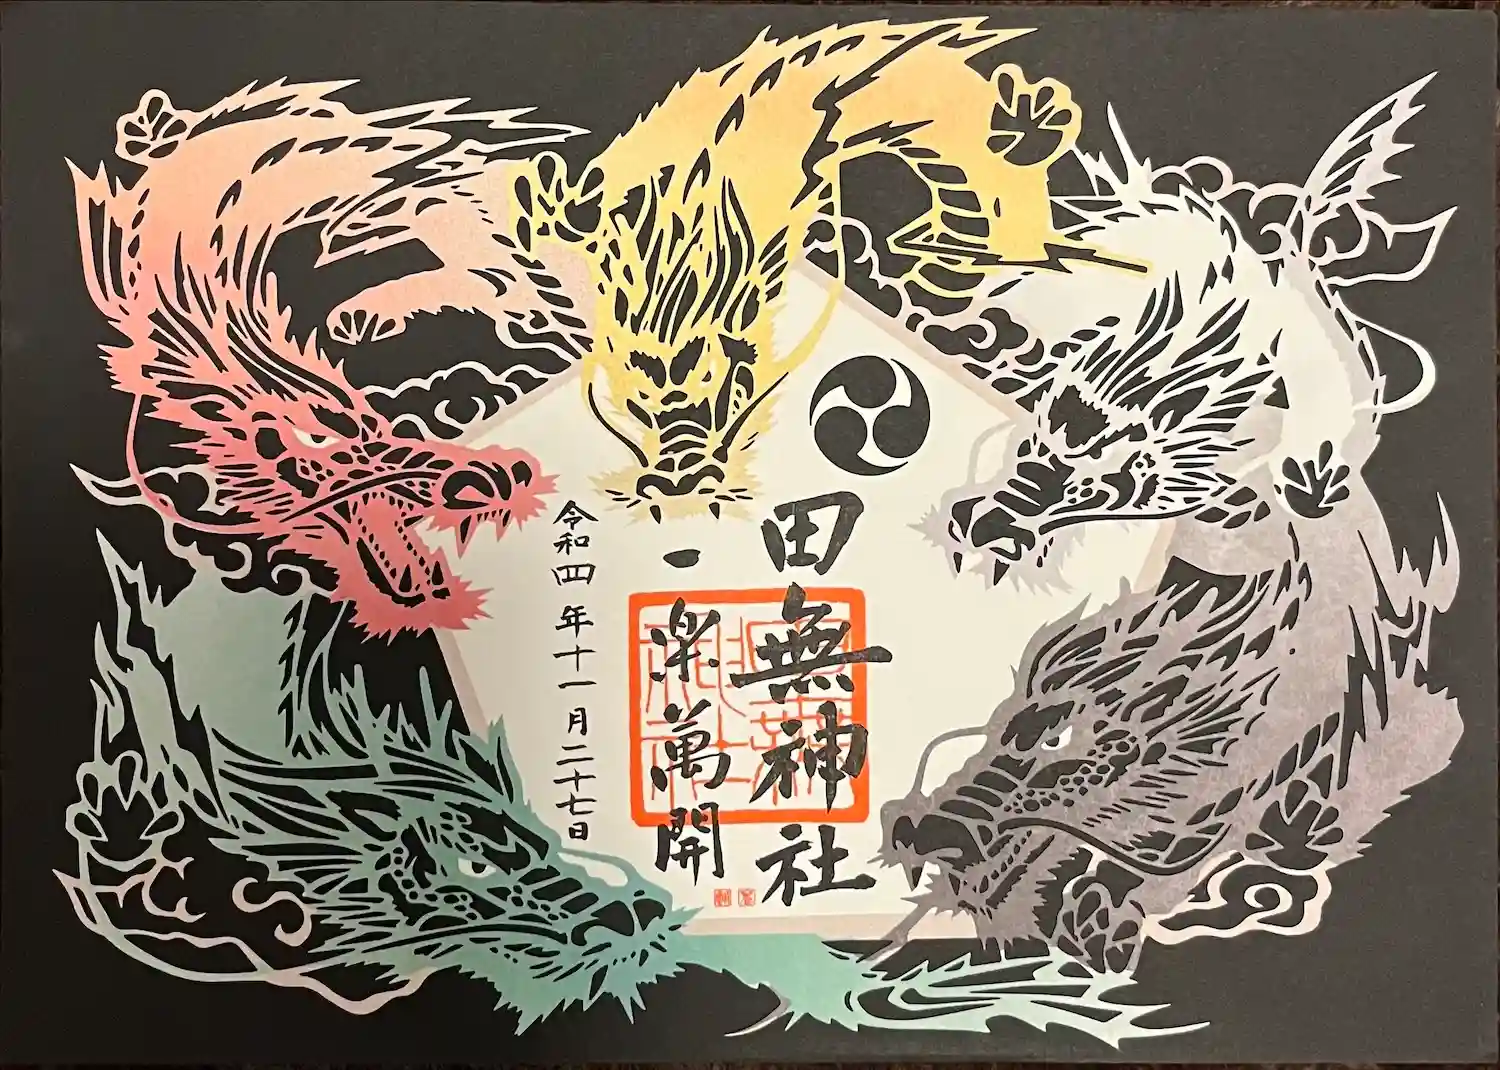 田無神社
一樂萬開
令和四年十一月二十七日